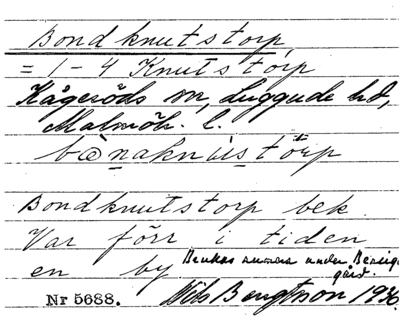 Bondknutstorp
= 1 - 4 Knutstorp
Kågeröds sn, Luggude hd,
Malmöh. l.
Bondknutstorp bek.
Var förr i tiden
en by
under
gård.
Nr 5688. Nils Bengtsson 1936